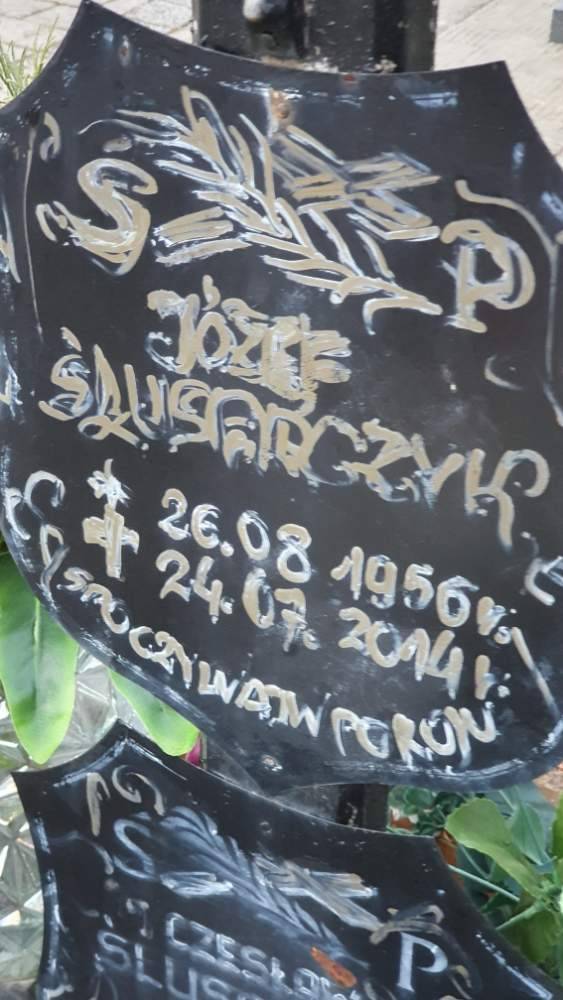 Ś P
JÓZEF
ŚLUSARCZYK
* 26.08 1956 r.
✝ 24.07. 2014 r.
SPOCZYWAJ W POKOJU
Ś P
CZESŁAW